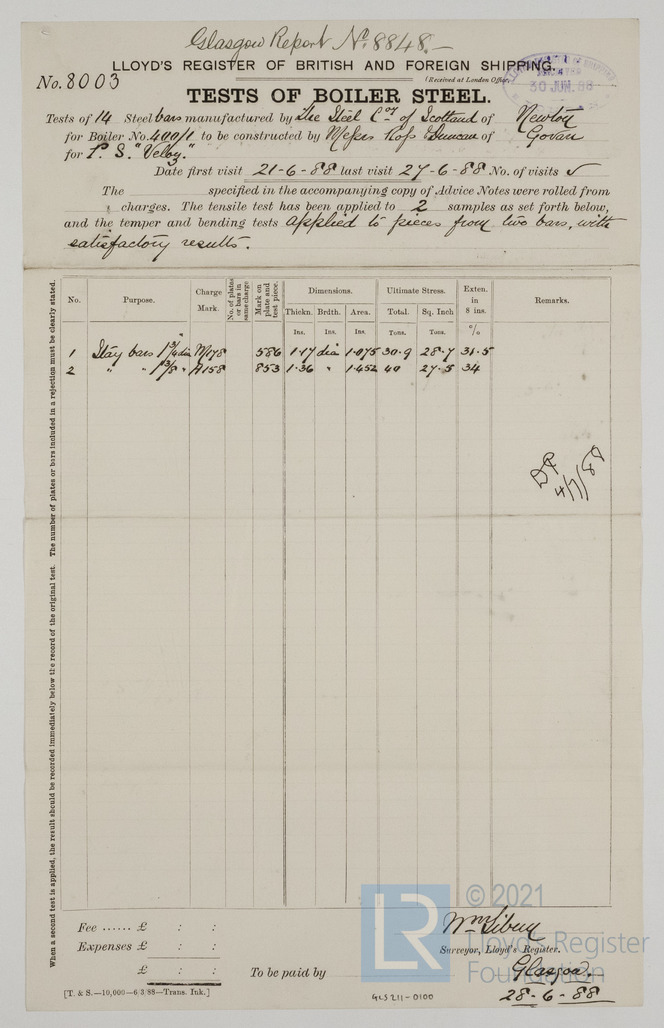 Glasgow Report No. 8848.—
LLOYD'S REGISTER OF BRITISH AND FOREIGN SHIPPING.
No. 8003
(Received at London Office
30 JUN. 88
TESTS OF BOILER STEEL.
Tests of 14 Steel bars manufactured by The Steel Coy of Scotland of Newton
for Boiler No. 400/1 to be constructed by Messrs Ross & Duncan of Govan
for P. S. "Veloz."
Date first visit 21-6-88 last visit 27-6-88 No. of visits ✓
The specified in the accompanying copy of Advice Notes were rolled from
charges. The tensile test has been applied to 2 samples as set forth below,
and the temper and bending tests applied to pieces from two bars, with
satisfactory results.
When a second test is applied, the result should be recorded immediately below the record of the original test. The number of plates or bars included in a rejection must be clearly stated.
No. Purpose. Charge Mark. No. of plates or bars in same charge Mark on plate and test piece. Dimensions. Ultimate Stress. Exten. in 8 ins. Remarks.
Thickn. Brdth. Area. Total. Sq. Inch
Ins. Ins. Ins. Tons. Tons. %
1 Stay bars 1 3/4" dia M178 586 1.17 dia 1.075 30.9 28.7 31.5
2 " " 1 3/8 " A158 853 1.36 " 1.452 40 27.5 34
4/7/88
Fee ...... £ : :
Expenses £ : :
£ : :
To be paid by
Surveyor, Lloyd's Register.
Glasgow.
28-6-88
[T. & S.—10,000—6/3/88—Trans. Ink.]
GLS211-0100
LR
© 2021
Lloyd's Register
Foundation